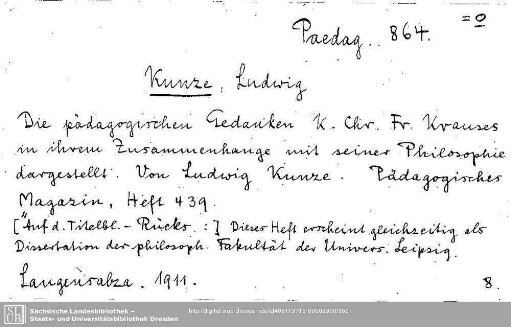 = 0
Paedag.. 864.
Kunze, Ludwig
Die pädagogischen Gedanken K. Chr. Fr. Krauses
in ihrem Zusammenhange mit seiner Philosophie
dargestellt. Von Ludwig Kunze. Pädagogisches
Magazin, Heft 439.
[Auf d. Titelbl. - Rücks. :] Dieses Heft erscheint gleichzeitig als
Dissertation der philosoph. Fakultät der Univers. Leipzig.
Langensalza. 1911. 8.
SLUB Sächsische Landesbibliothek –
Staats- und Universitätsbibliothek Dresden